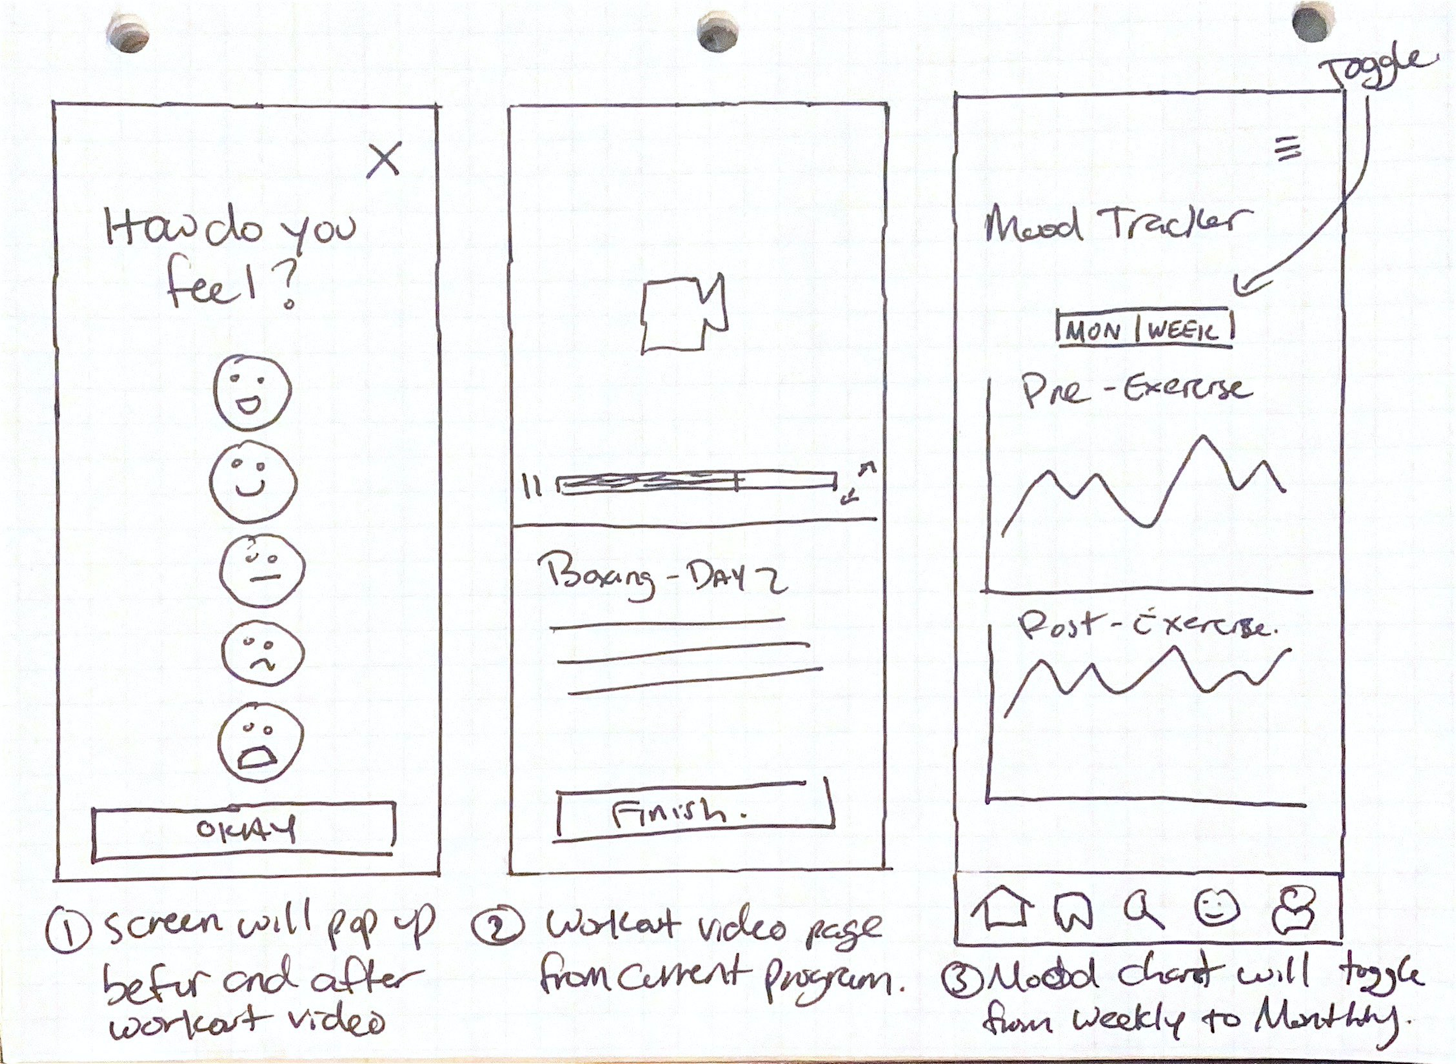 Toggle
How do you
feel?
OKAY
① Screen will pop up
befor and after
workout video
Boxing - DAY 2
Finish.
② Workout video page
from current program.
Mood Tracker
MON | WEEK
Pre - Exercise
Post - Exercise.
③ Mood chart will toggle
from weekly to Monthly.